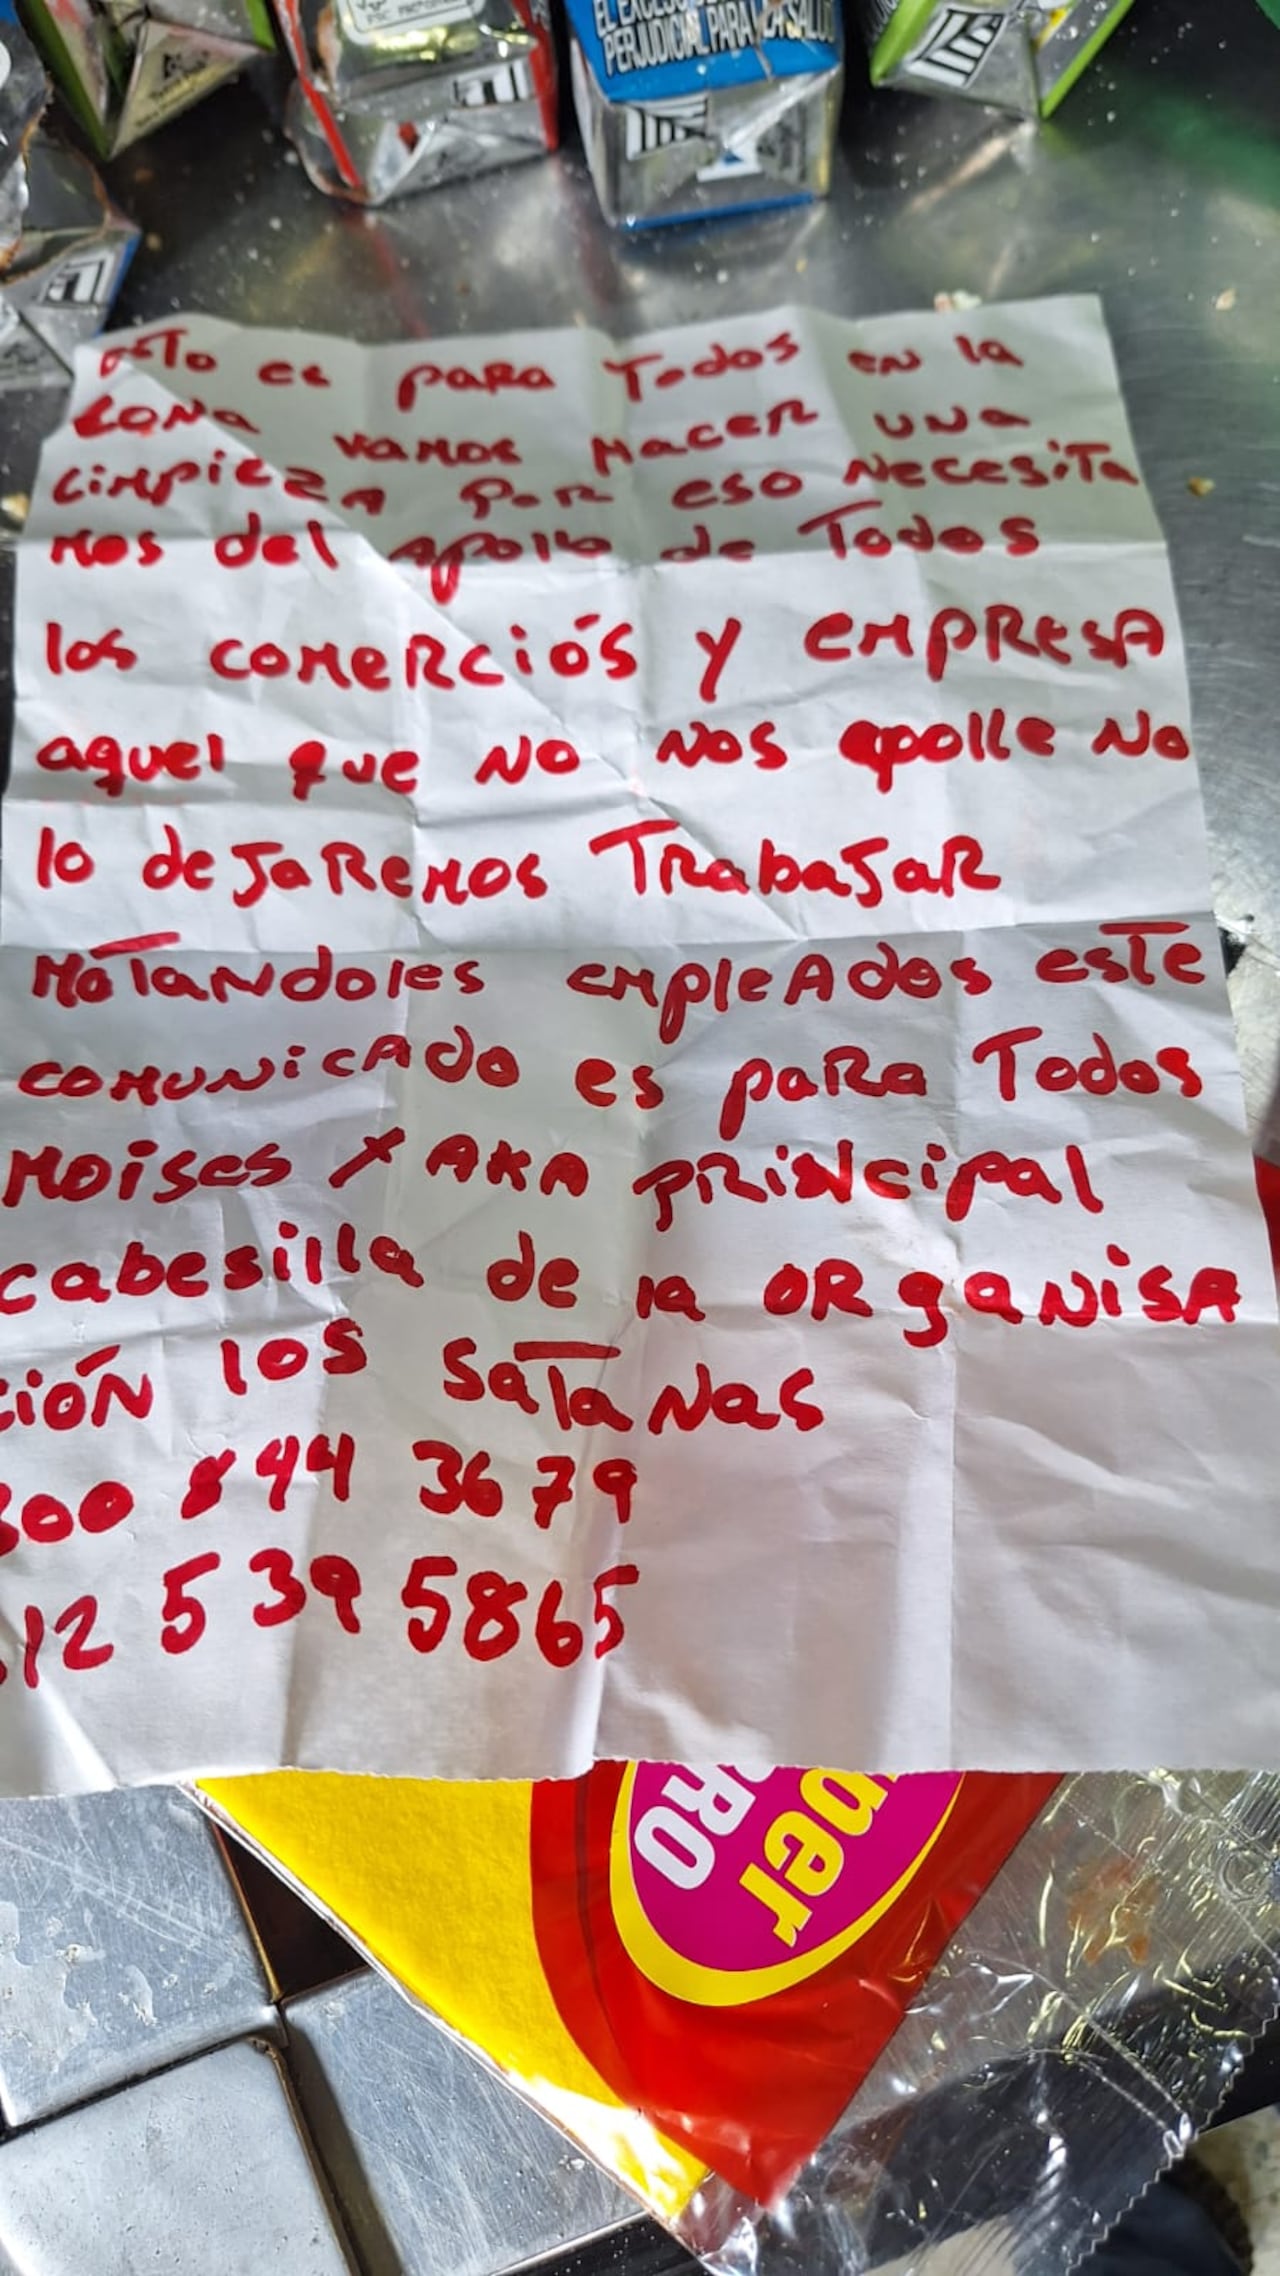 EL EXCESO DE
PERJUDICIAL PARA LA SALUD
esto es para Todos en la
zona vamos Hacer una
Limpieza por eso Necesita
mos del apollo de Todos
los comerciós y empresa
aquel que no nos apolle No
lo dejaremos Trabajar
Matandoles empleados este
comunicado es para Todos
Moises X AKA prisncipal
cabesilla de la ORganisa
ción los Satanas
300 844 3679
312 5 39 5865
per
RO